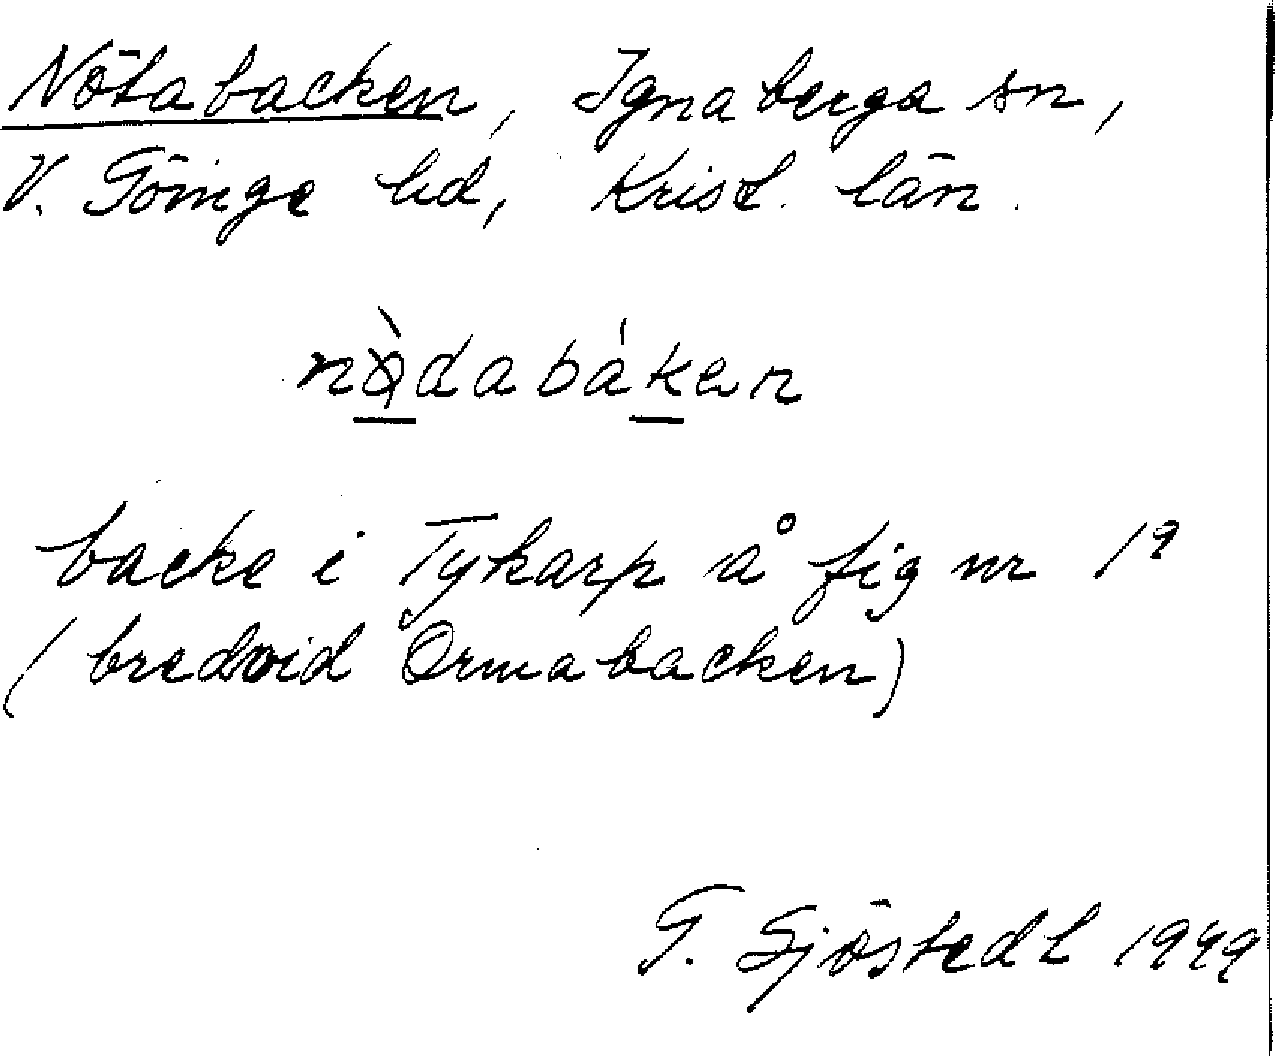 Nötabacken, Ignaberga sn,
V. Göinge hd, Krist. län.
nø̀dabáken
backe i Tykarp å fig nr 1⁹
(bredvid Ormabacken)
G. Sjöstedt 1949